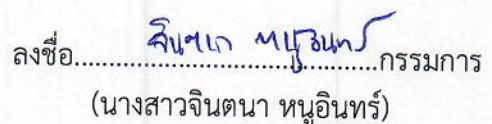 ลงชื่อ จินตนา หนูอินทร์ กรรมการ
(นางสาวจินตนา หนูอินทร์)